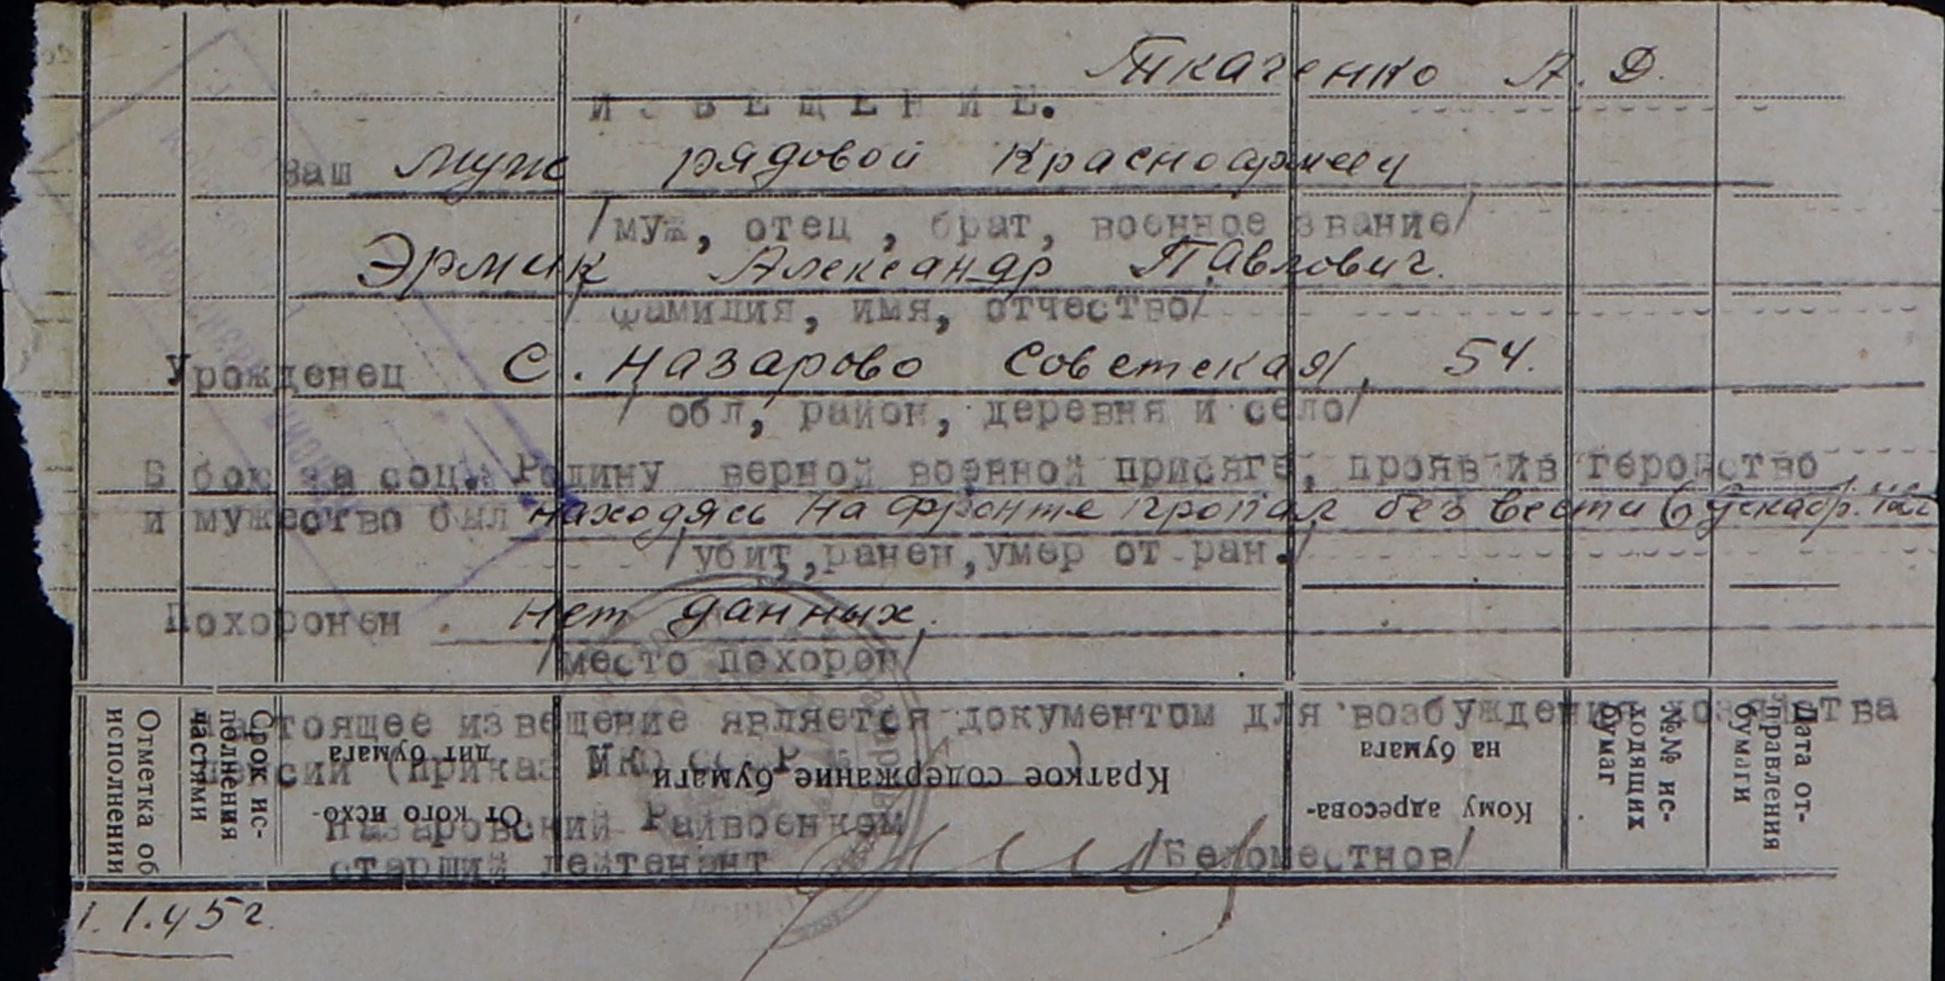 Ткаченко А. Д.
ИЗВЕЩЕНИЕ.
Ваш муж рядовой красноармеец
/муж, отец, брат, военное звание/
Эрмик Александр Павлович.
/фамилия, имя, отчество/
Урожденец с. Назарово Советская, 54.
/обл, район, деревня и село/
В бою за соц. Родину верной военной присяге, проявив геройство
и мужество был находясь на фронте пропал без вести в декабр.
/убит, ранен, умер от ран./
Похоронен. нет данных.
/место похорон/
Настоящее извещение является документом для возбуждения
пенсии (приказ НКО СССР № )
Назаровский Райвоенком
старший лейтенант /Беломестнов/
1.1.45 г.
Отметка об исполнении
Срок исполнения частями
От кого исходит бумага
Краткое содержание бумаги
Кому адресована бумага
№№ исходящих бумаг
Дата отправления бумаги